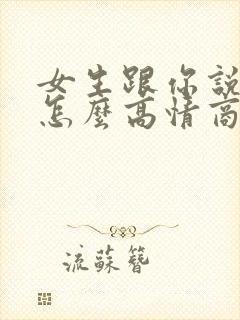 女生跟你說
怎麼高情商
流蘇簪